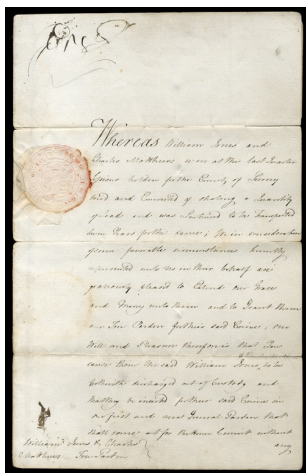 Whereas William Jones and
Charles Matthews, were at the last Quarter
Sessions holden for the County of Surrey
tried and Convicted of stealing a Quantity
of and was Sentenced to be transported
Seven Years for the same; We in consideration
of some favorable circumstances humbly
represented unto us in their behalf are
graciously pleased to Extend our Grace
and Mercy unto them and to Grant them
our Free Pardon for their said Crime; our
Will and Pleasure therefore is that You
cause them the said William Jones, to be
forthwith discharged out of Custody and
that be inserted for their said Crime in
our first and next General Pardon that
shall come out for the Home Circuit without
any
William Jones & Charles
Matthews Free Pardon